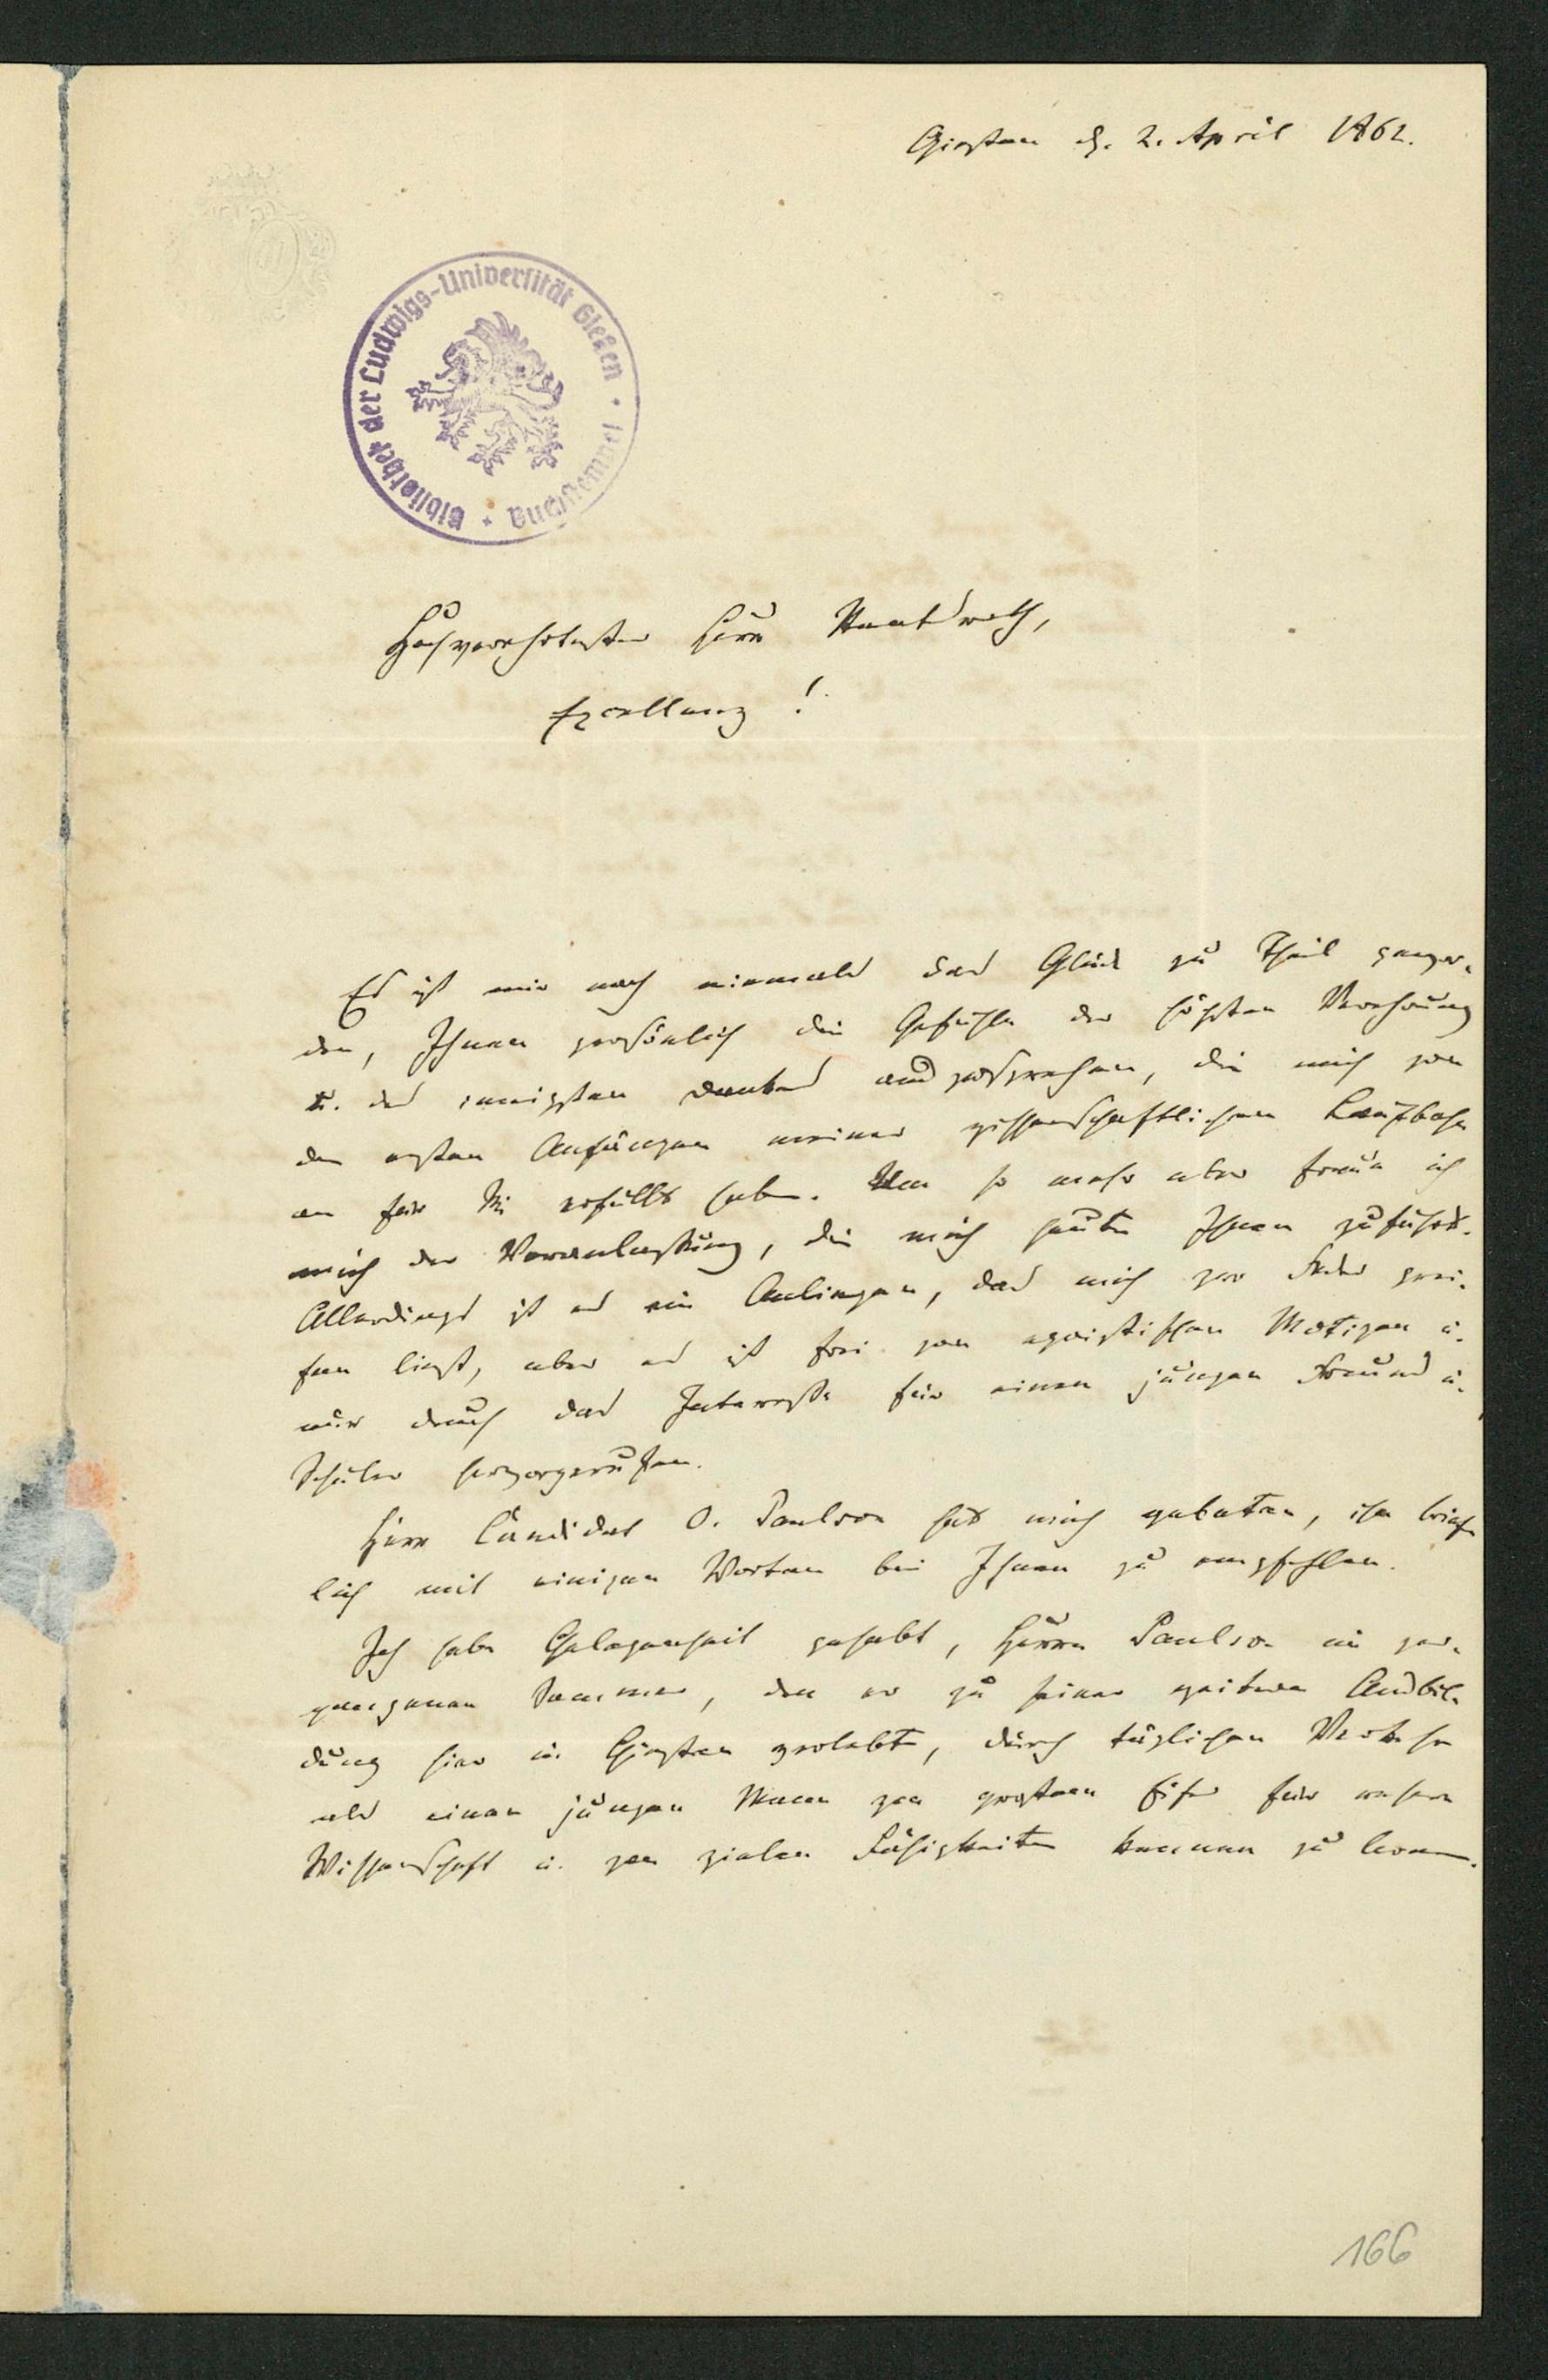 Giesten d. 2. April 1862.
Bibliothek der Ludwigs-Universität Gießen · Buchstempel ·
Hochverehrtester Herr Staatsrath,
Excellenz!
Es ist mir noch niemals das Glück zu Theil gewor-
den, Ihnen persönlich die Gefühle der höchsten Verehrung
u. des innigsten Dankes auszusprechen, die mich von
den ersten Anfängen meiner wissenschaftlichen Laufbahn
an für Sie erfüllt haben. Um so mehr aber freue ich
mich der Veranlassung, die mich heute Ihnen zuführt.
Allerdings ist es ein Anliegen, das mich zur Feder grei-
fen liest, aber es ist frei von egoistischen Motiven u.
nur durch das Interesse für einen jungen Freund u.
Schüler hervorgerufen.
Herr Candidat O. Paulson hat mich gebeten, ihn brief-
lich mit einigen Worten bei Ihnen zu empfehlen.
Ich habe Gelegenheit gehabt, Herrn Paulson im ver-
gangenen Sommer, den er zu seiner weitern Ausbil-
dung hier in Giesten verlebte, durch täglichen Verkehr
als einen jungen Mann von grostem Eifer für unsere
Wissenschaft u. von vielen Fähigkeiten kennen zu lernen.
166